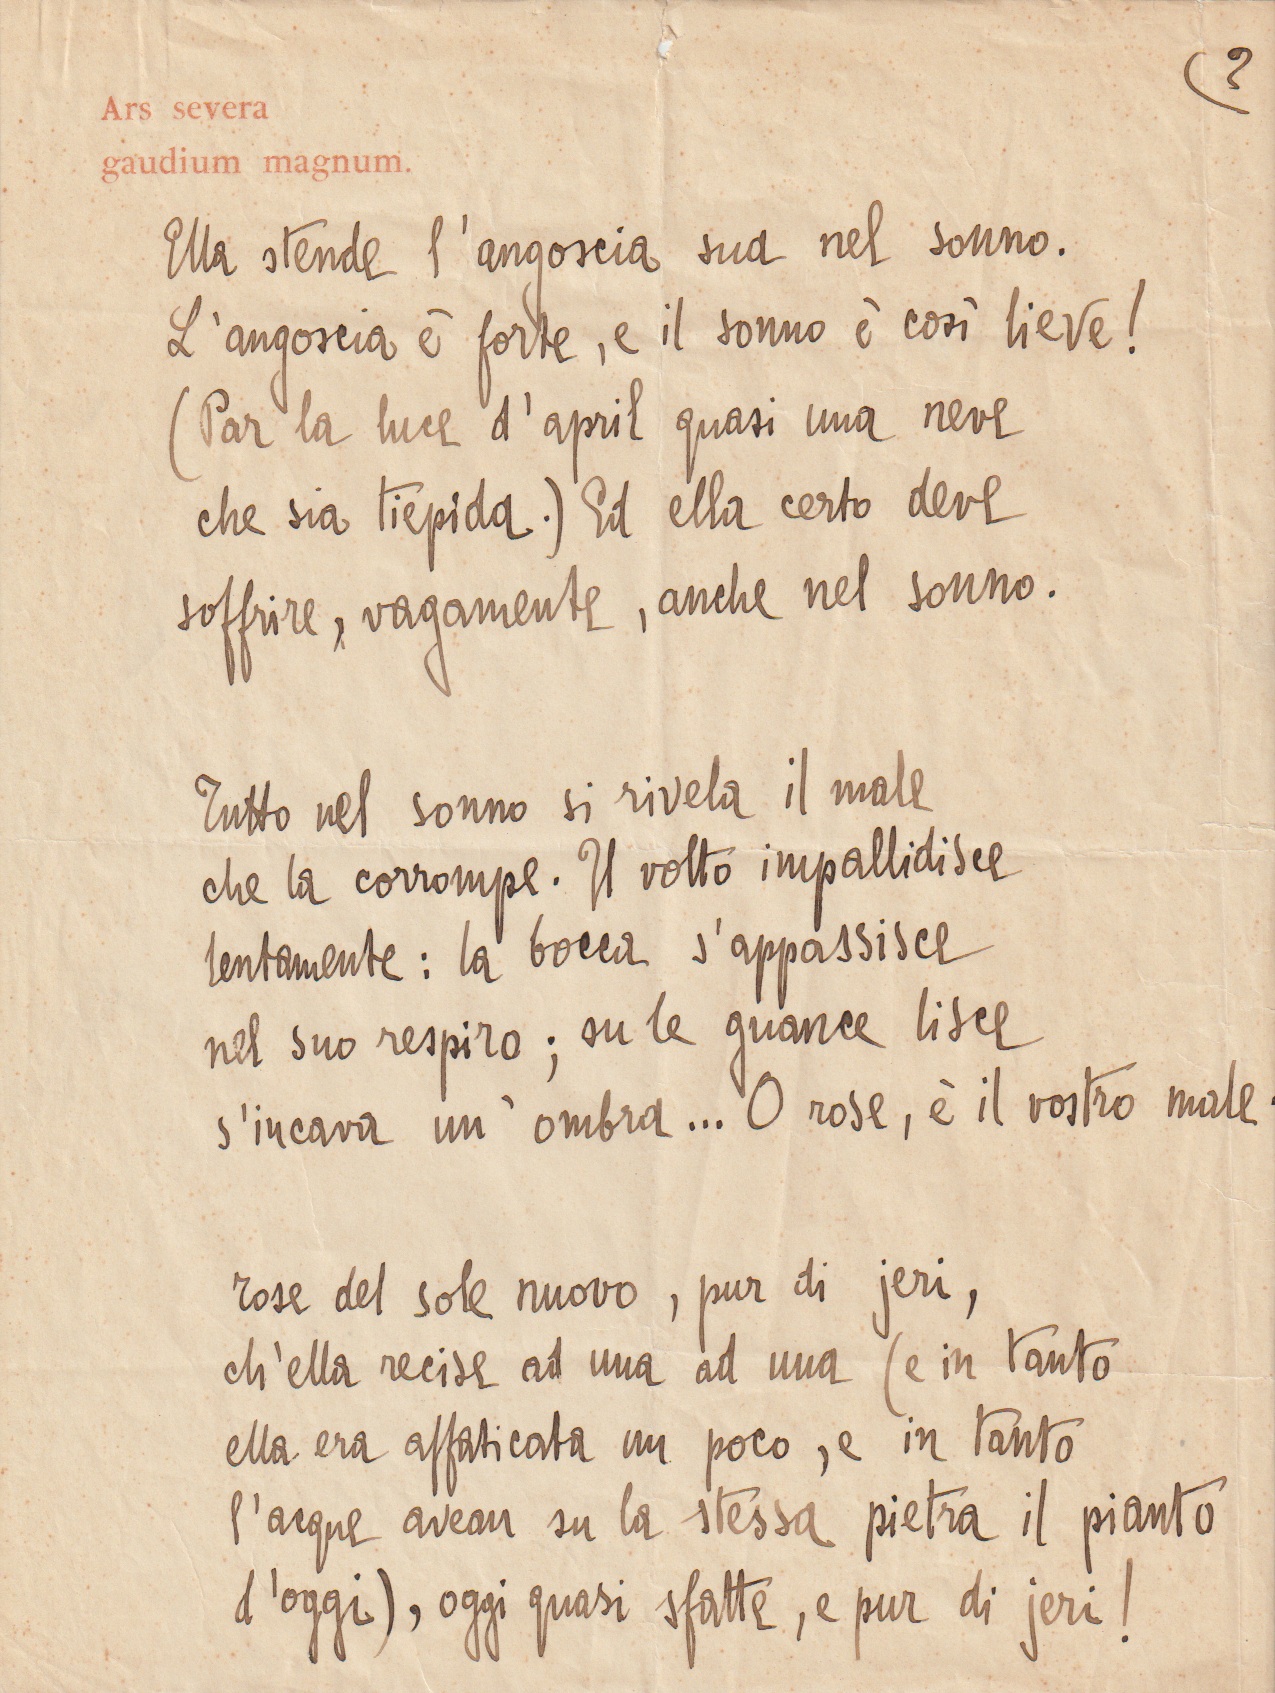 (2
Ars severa
gaudium magnum.
Ella stende l'angoscia sua nel sonno.
L'angoscia è forte, e il sonno è così lieve!
(Par la luce d'april quasi una neve
che sia tiepida.) Ed ella certo deve
soffrire, vagamente, anche nel sonno.
Tutto nel sonno si rivela il male
che la corrompe. Il volto impallidisce
lentamente: la bocca s'appassisce
nel suo respiro; su le guance lisce
s'incava un'ombra... O rose, è il vostro male.
rose del sole nuovo, pur di jeri,
ch'ella recise ad una ad una (e in tanto
ella era affaticata un poco, e in tanto
l'acque avean su la stessa pietra il pianto
d'oggi), oggi quasi sfatte, e pur di jeri!